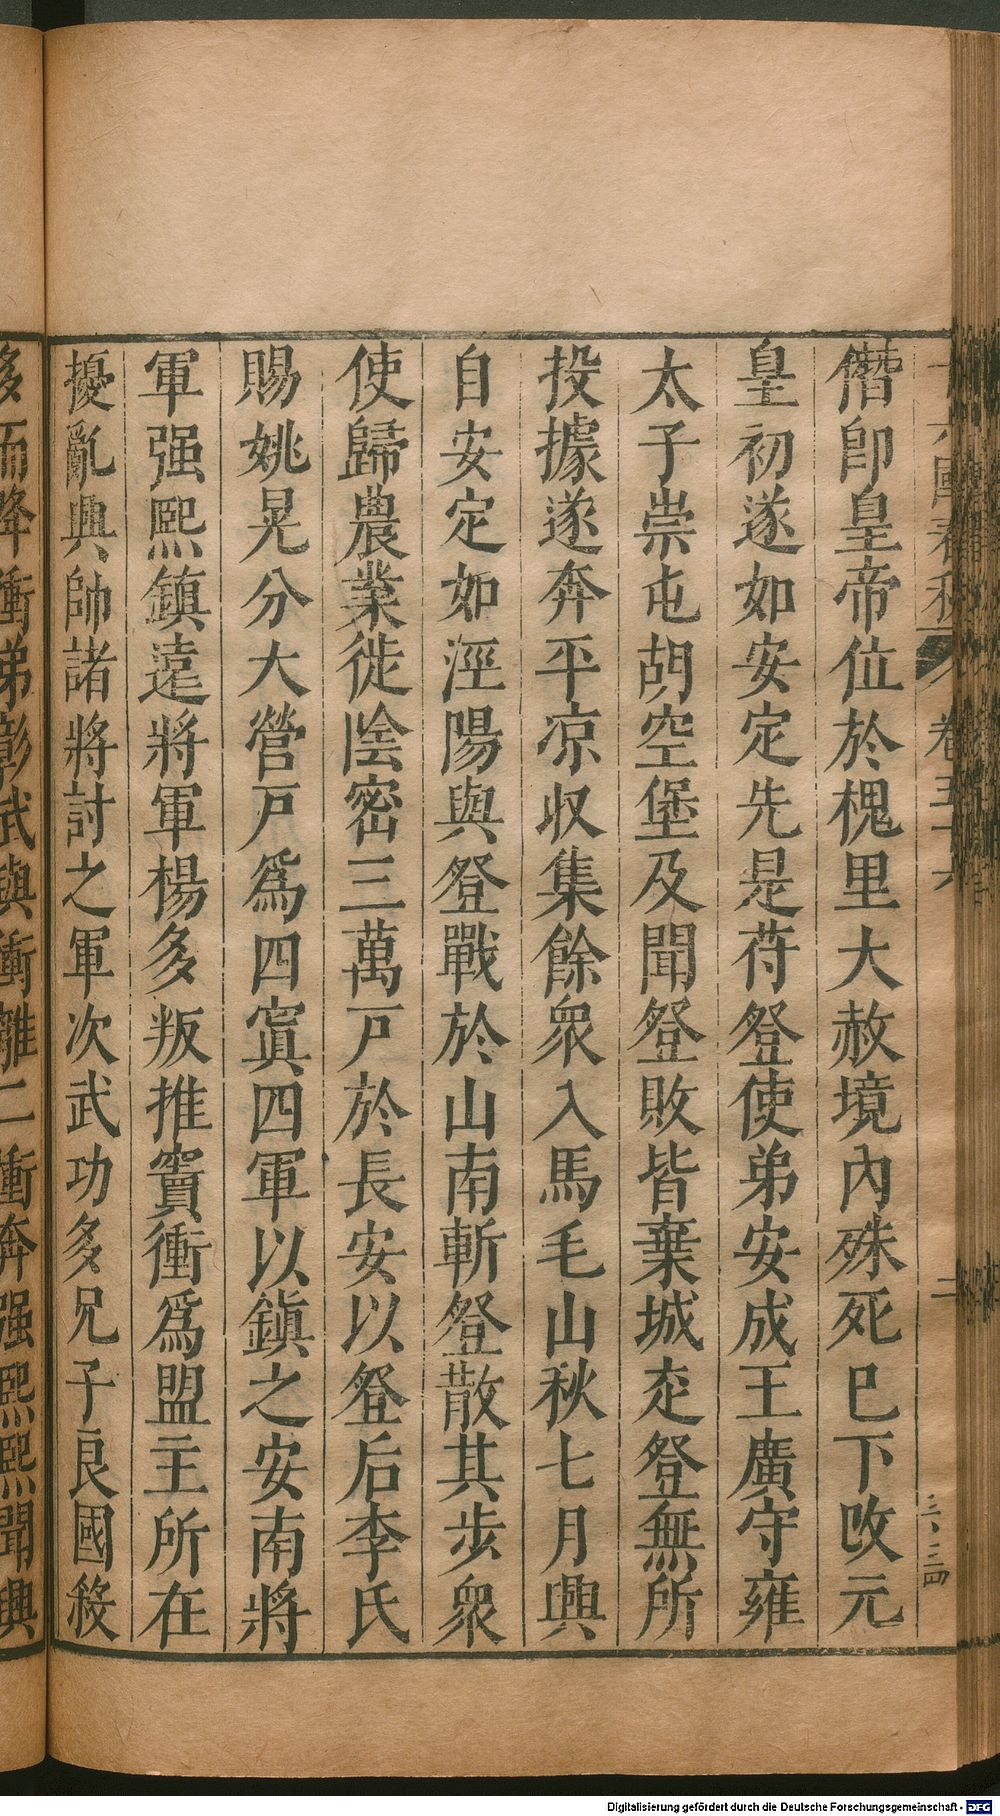 十六國春秋 卷五十六 二
僭卽皇帝位於槐里大赦境內殊死巳下改元
皇初遂如安定先是苻登使弟安成王廣守雍
太子崇屯胡空堡及聞登敗皆棄城走登無所
投據遂奔平凉収集餘衆入馬毛山秋七月興
自安定如涇陽與登戰於山南斬登散其步衆
使歸農業徙陰密三萬戸於長安以登后李氏
賜姚晃分大營戸爲四寘四軍以鎮之安南將
軍强熙鎮遠將軍楊多叛推竇衝爲盟主所在
擾亂興帥諸將討之軍次武功多兄子良國殺
多而降衝弟彰武與衝離二衝奔强熙熙聞興
Digitalisierung gefördert durch die Deutsche Forschungsgemeinschaft - DFG